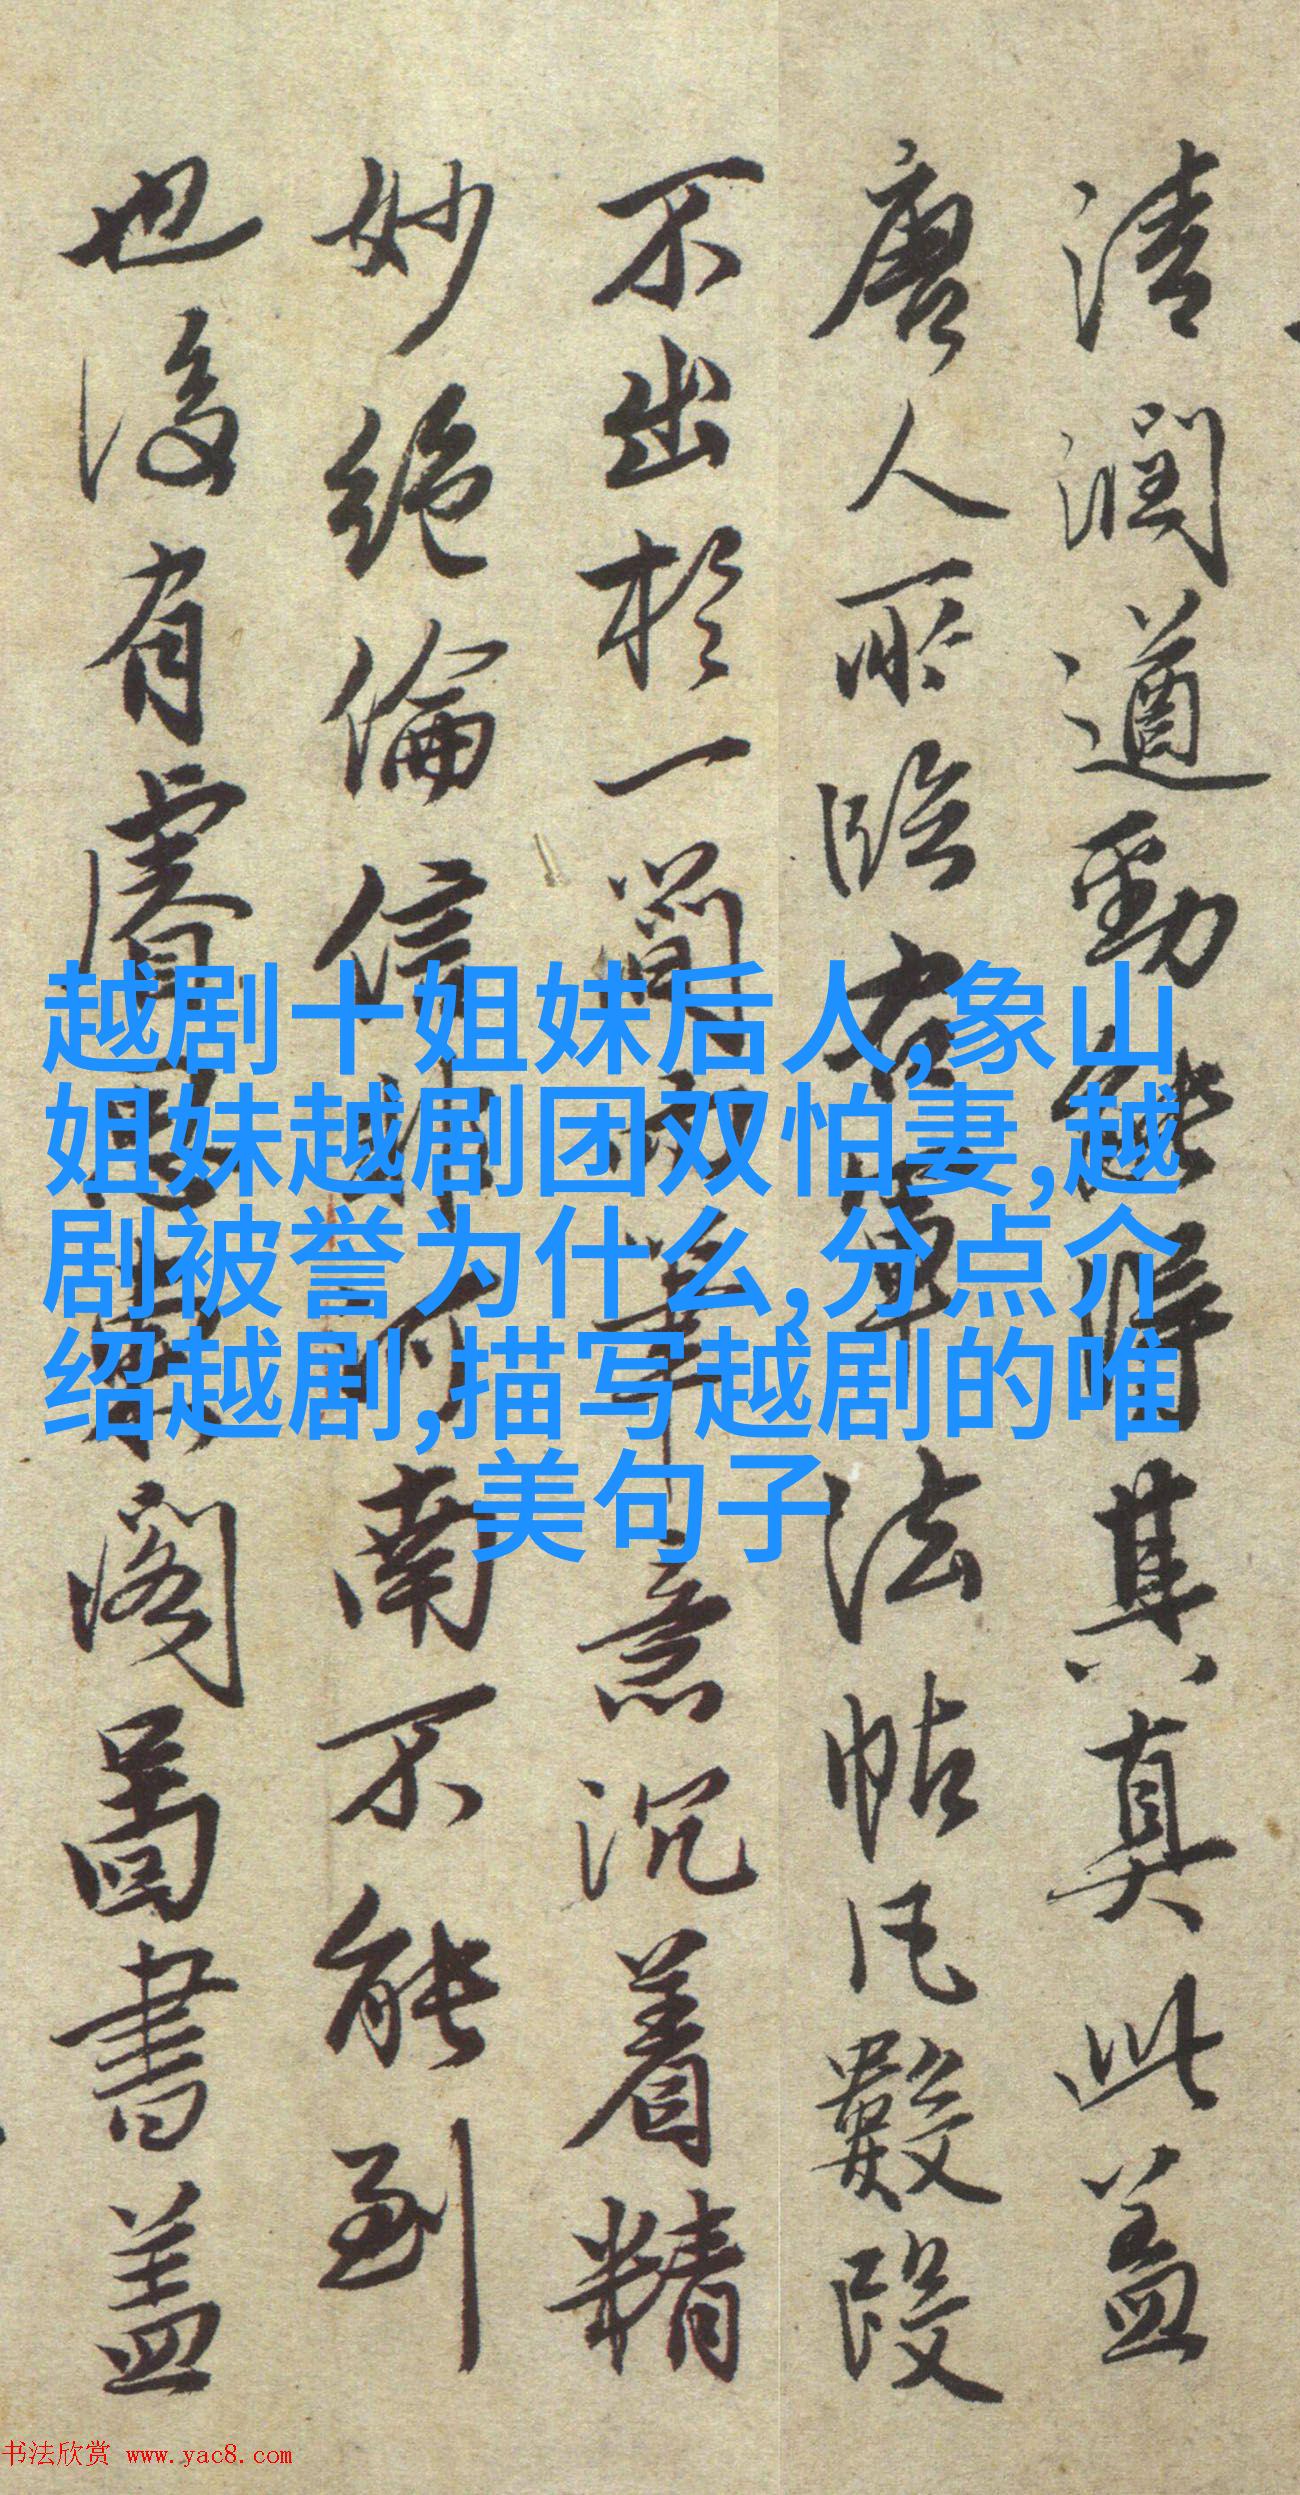 清潤遒勁能得其真此盖
唐人所臨右軍法帖凡數段
不出於一簡而筆意沉着精
妙絶倫信南不能到
也後有睿思東閣圖書盖
越剧十姐妹后人,象山
姐妹越剧团双怕妻,越
剧被誉为什么,分点介
绍越剧,描写越剧的唯
美句子
书法欣赏 www.yac8.com